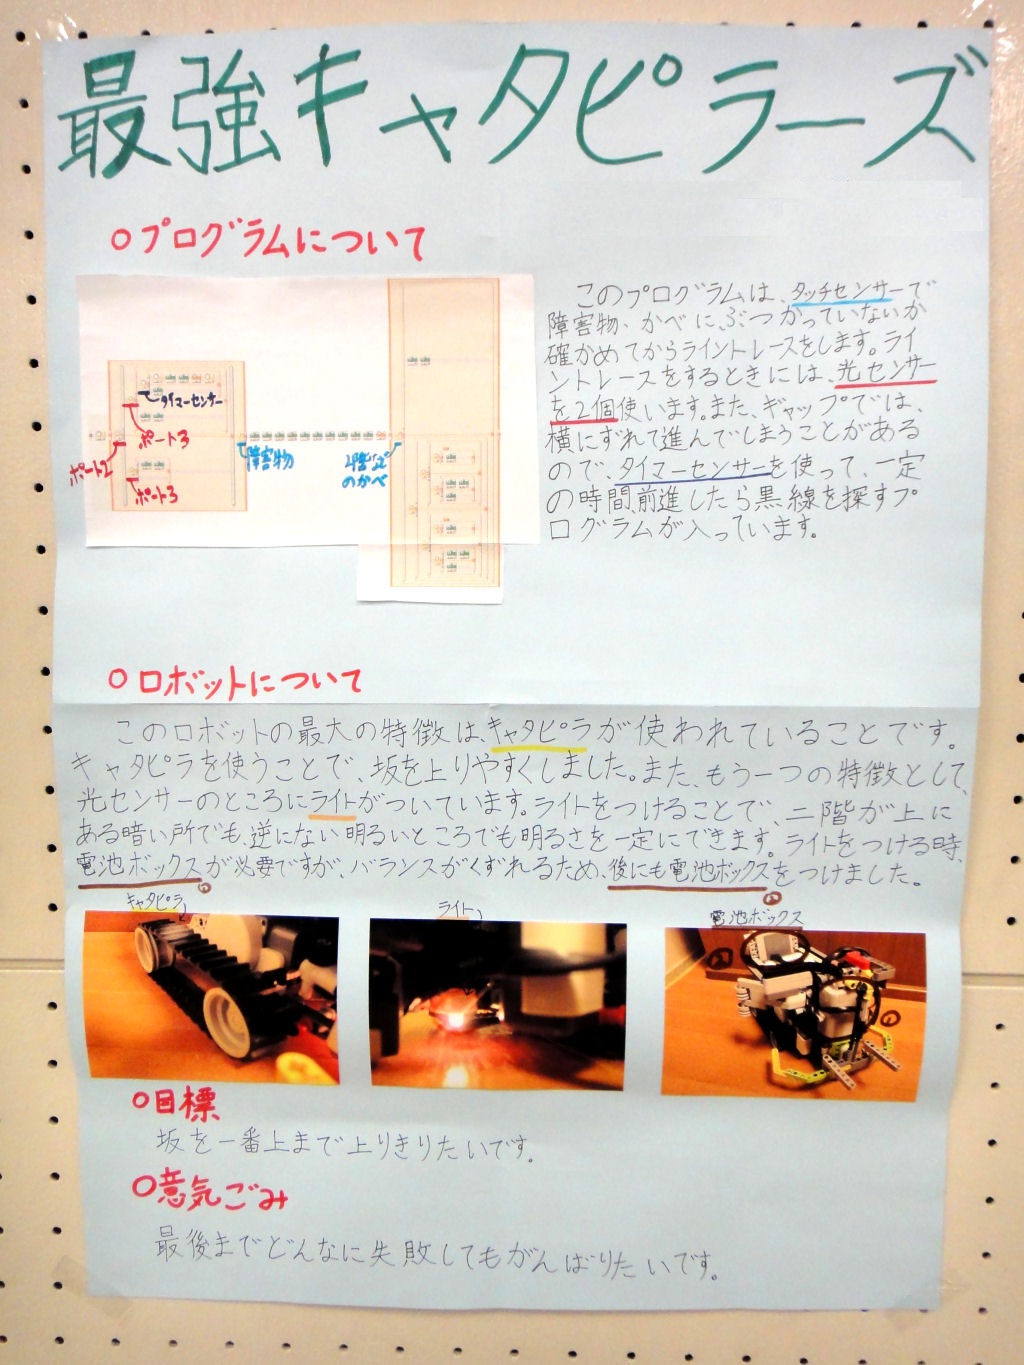 最強キャタピラーズ
○プログラムについて
このプログラムは、タッチセンサーで
障害物、かべに、ぶつかっていないか
確かめてからライントレースをします。ライ
ントレースをするときには、光センサー
を2個使います。また、ギャップでは、
横にずれて進んでしまうことがある
ので、タイマーセンサーを使って、一定
の時間前進したら黒線を探すプ
ログラムが入っています。
タイマーセンサー
ポート3
ポート2
ポート3
障害物
のかべ
○ロボットについて
このロボットの最大の特徴は、キャタピラが使われていることです。
キャタピラを使うことで、坂を上りやすくしました。また、もう一つの特徴として、
光センサーのところにライトがついています。ライトをつけることで、二階が上に
ある暗い所でも、逆にない明るいところでも明るさを一定にできます。ライトをつける時、
電池ボックスが必要ですが、バランスがくずれるため、後にも電池ボックスをつけました。
キャタピラ
ライト
電池ボックス
○目標
坂を一番上まで上りきりたいです。
○意気ごみ
最後までどんなに失敗してもがんばりたいです。